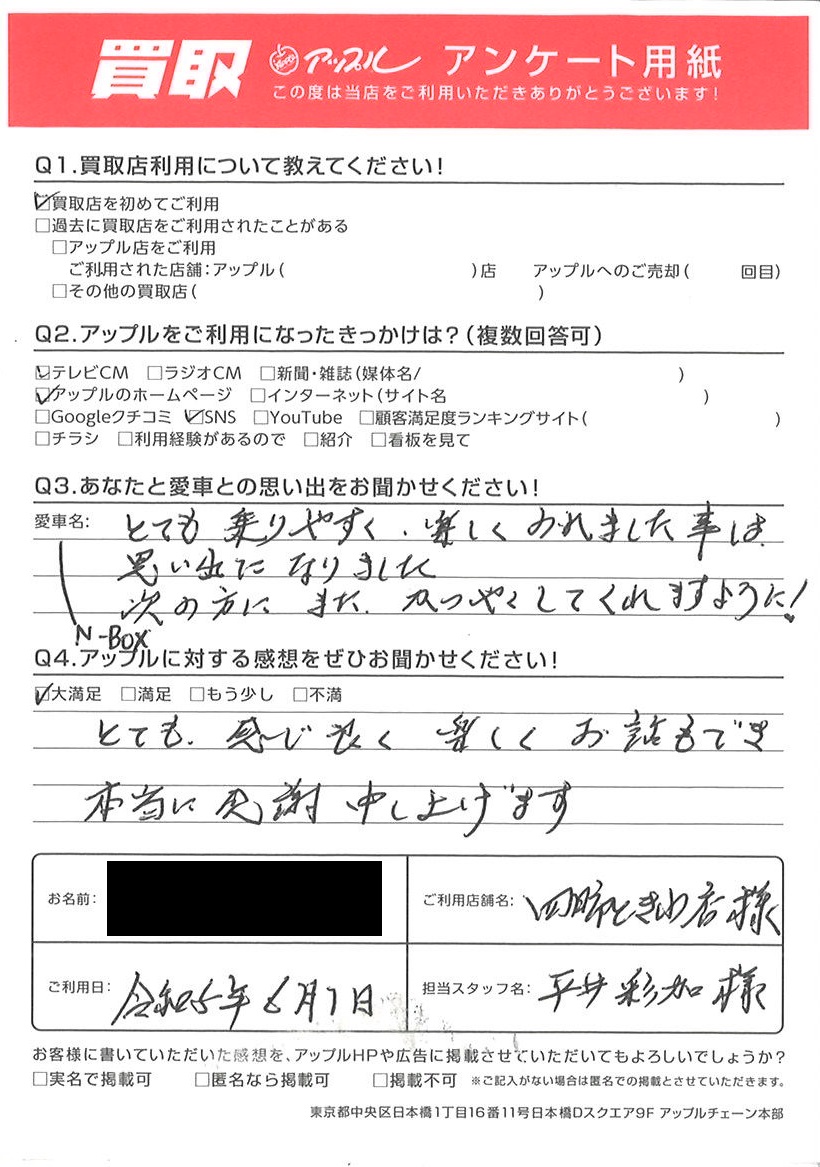 買取 アップル アンケート用紙
この度は当店をご利用いただきありがとうございます!
Q1.買取店利用について教えてください!
☑買取店を初めてご利用
□過去に買取店をご利用されたことがある
□アップル店をご利用
ご利用された店舗:アップル( )店 アップルへのご売却( 回目)
□その他の買取店( )
Q2.アップルをご利用になったきっかけは?(複数回答可)
☑テレビCM □ラジオCM □新聞・雑誌(媒体名/ )
☑アップルのホームページ □インターネット(サイト名 )
□Googleクチコミ ☑SNS □YouTube □顧客満足度ランキングサイト( )
□チラシ □利用経験があるので □紹介 □看板を見て
Q3.あなたと愛車との思い出をお聞かせください!
愛車名: とても 乗りやすく、楽しくのれました事は
思い出に なりました
次の方に また、かつやくしてくれますように!
N-BOX
Q4.アップルに対する感想をぜひお聞かせください!
☑大満足 □満足 □もう少し □不満
とても、感じ良く 楽しく お話もでき
本当に 感謝 申し上げます
お名前: ご利用店舗名: 四日市ときわ店様
ご利用日: 令和5年6月1日 担当スタッフ名: 平井 彩加 様
お客様に書いていただいた感想を、アップルHPや広告に掲載させていただいてもよろしいでしょうか?
□実名で掲載可 □匿名なら掲載可 □掲載不可 ※ご記入がない場合は匿名での掲載とさせていただきます。
東京都中央区日本橋1丁目16番11号日本橋Dスクエア9F アップルチェーン本部